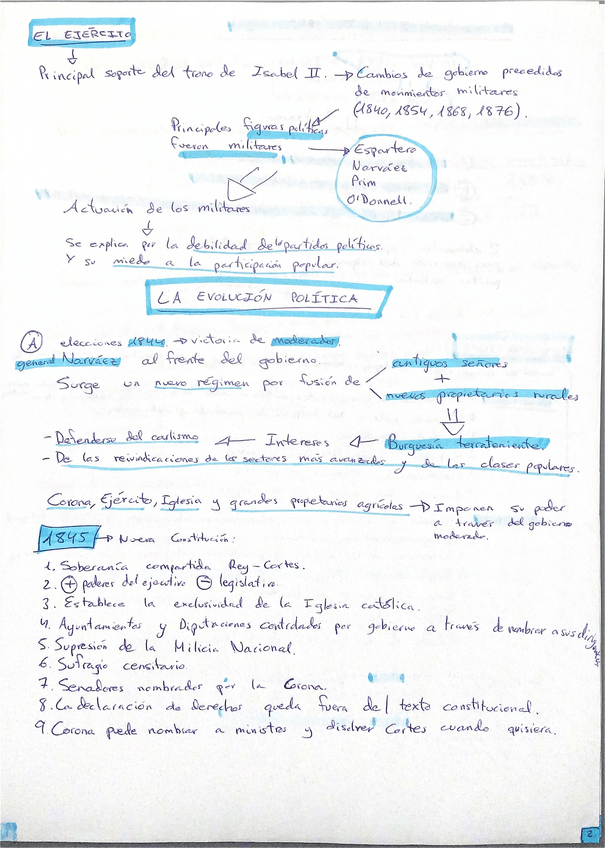 EL EJÉRCITO
Principal soporte del trono de Isabel II. → Cambios de gobierno precedidos
de movimientos militares
(1840, 1854, 1868, 1876).
Principales figuras políticas
fueron militares → Espartero
Narváez
Prim
O'Donnell.
Actuación de los militares
Se explica por la debilidad de los partidos políticos.
Y su miedo a la participación popular.
LA EVOLUCIÓN POLÍTICA
A elecciones 1844 → victoria de moderador.
general Narváez al frente del gobierno.
Surge un nuevo régimen por fusión de
antiguos señores
+
nuevos propietarios rurales
Burguesía terrateniente.
Intereses
- Defenderse del carlismo
- De las reivindicaciones de los sectores más avanzados y de las clases populares.
Corona, Ejército, Iglesia y grandes propietarios agrícolas → Imponen su poder
a través del gobierno
moderado.
1845 → Nueva Constitución:
1. Soberanía compartida Rey-Cortes.
2. + poderes del ejecutivo - legislativa.
3. Establece la exclusividad de la Iglesia católica.
4. Ayuntamientos y Diputaciones controlados por gobierno a través de nombrar a sus dirigentes
5. Supresión de la Milicia Nacional.
6. Sufragio censitario.
7. Senadores nombrados por la Corona.
8. La declaración de derechos queda fuera del texto constitucional.
9. Corona puede nombrar a ministros y disolver Cortes cuando quisiera.
2